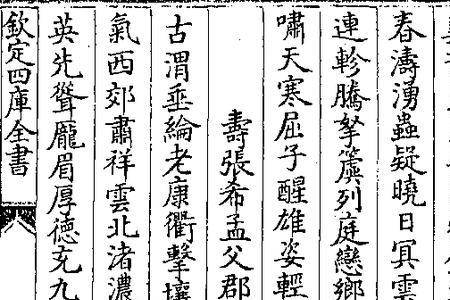 春濤湧蟲疑曉日冥雲
連軫騰拏簴列庭戀鄉
嘯天寒屈子醒雄姿輕
壽張希孟父郡
古渭垂綸老康衢擊壤
氣西郊肅祥雲北渚濃
英先聳龎眉厚德充九
欽定四庫全書